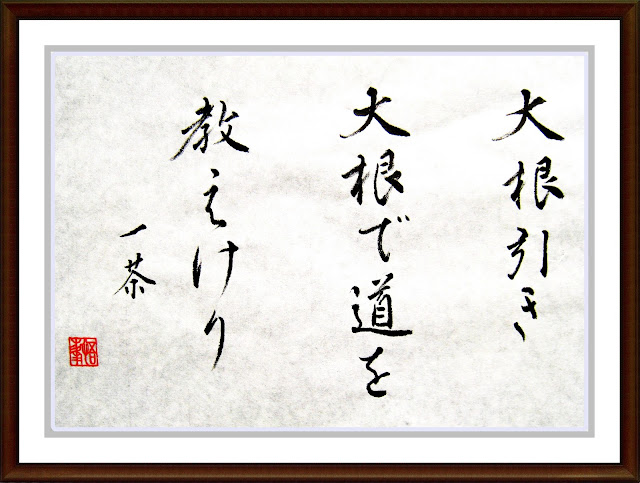 大根引き
大根で道を
教えけり
一茶